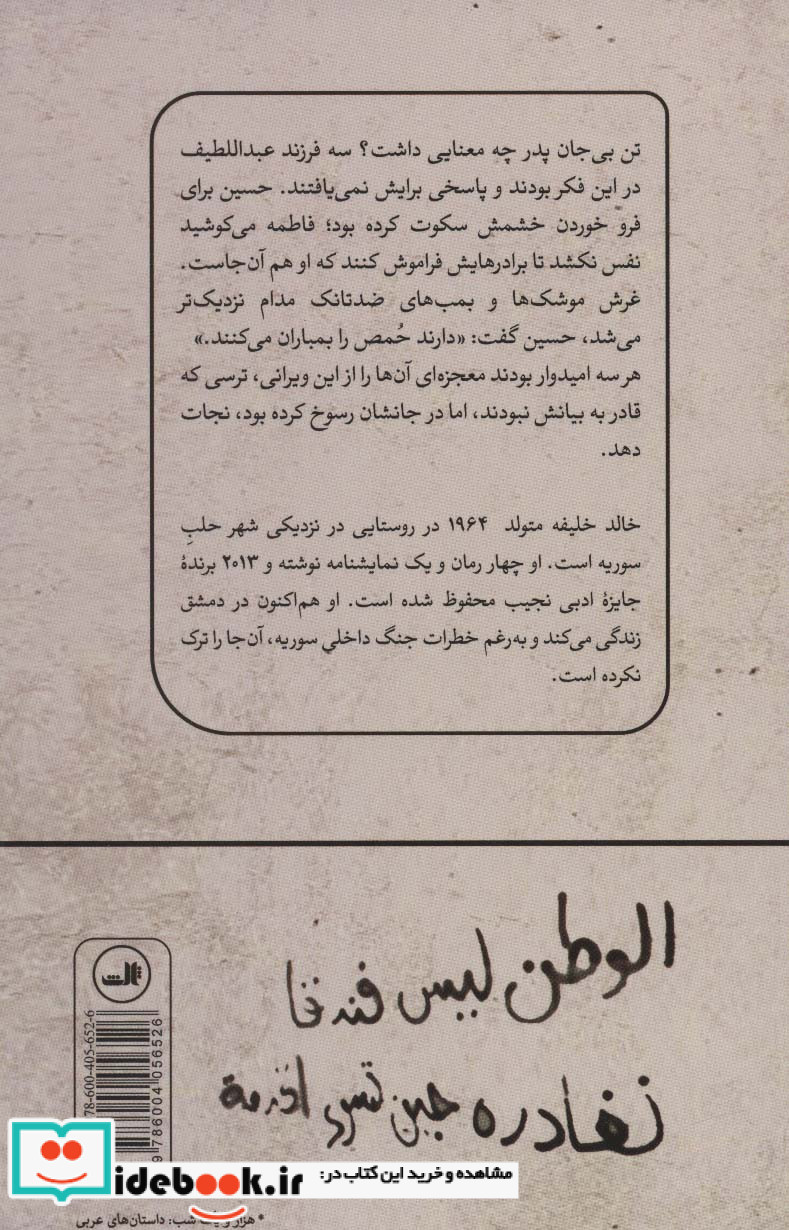 تن بی‌جان پدر چه معنایی داشت؟ سه فرزند عبداللطیف
در این فکر بودند و پاسخی برایش نمی‌یافتند. حسین برای
فرو خوردن خشمش سکوت کرده بود؛ فاطمه می‌کوشید
نفس نکشد تا برادرهایش فراموش کنند که او هم آن‌جاست.
غرش موشک‌ها و بمب‌های ضدتانک مدام نزدیک‌تر
می‌شد، حسین گفت: «دارند حُمص را بمباران می‌کنند.»
هر سه امیدوار بودند معجزه‌ای آن‌ها را از این ویرانی، ترسی که
قادر به بیانش نبودند، اما در جانشان رسوخ کرده بود، نجات
دهد.
خالد خلیفه متولد ۱۹۶۴ در روستایی در نزدیکی شهر حلبِ
سوریه است. او چهار رمان و یک نمایشنامه نوشته و ۲۰۱۳ برندهٔ
جایزهٔ ادبی نجیب محفوظ شده است. او هم‌اکنون در دمشق
زندگی می‌کند و به‌رغم خطرات جنگ داخلیِ سوریه، آن‌جا را ترک
نکرده است.
الوطن ليس فندقا
نغادره حين تسوء
ثالث
78-600-405-652-6
9 786004 056526
مشاهده و خرید این کتاب در:
idebook.ir
شب: داستان‌های عربی